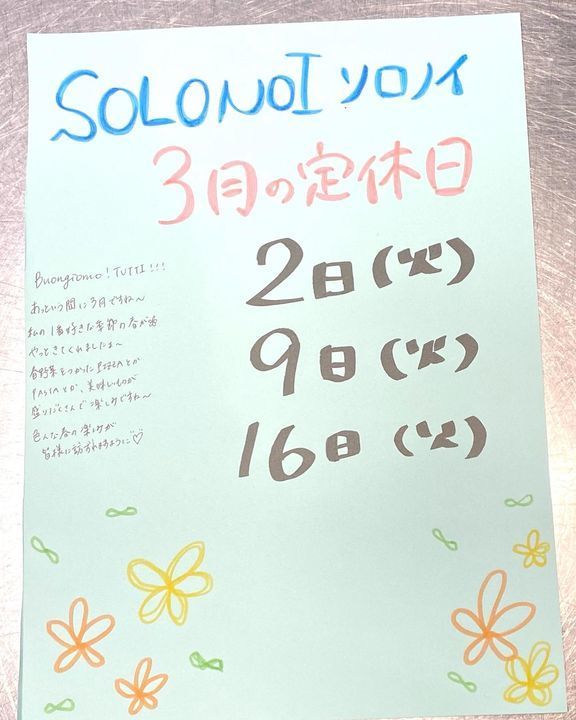 SOLONOI ソロノイ
3月の定休日
2日(火)
9日(火)
16日(火)
Buongiorno! TUTTI!!!
あっという間に3月ですね〜
私の1番好きな季節の春が
やっときてくれましたよ〜
春野菜をつかったPIZZAとか
PASTAとか、美味しいものが
盛りだくさんで楽しみですね〜
色んな春の楽しみが
皆様に訪れますように♡